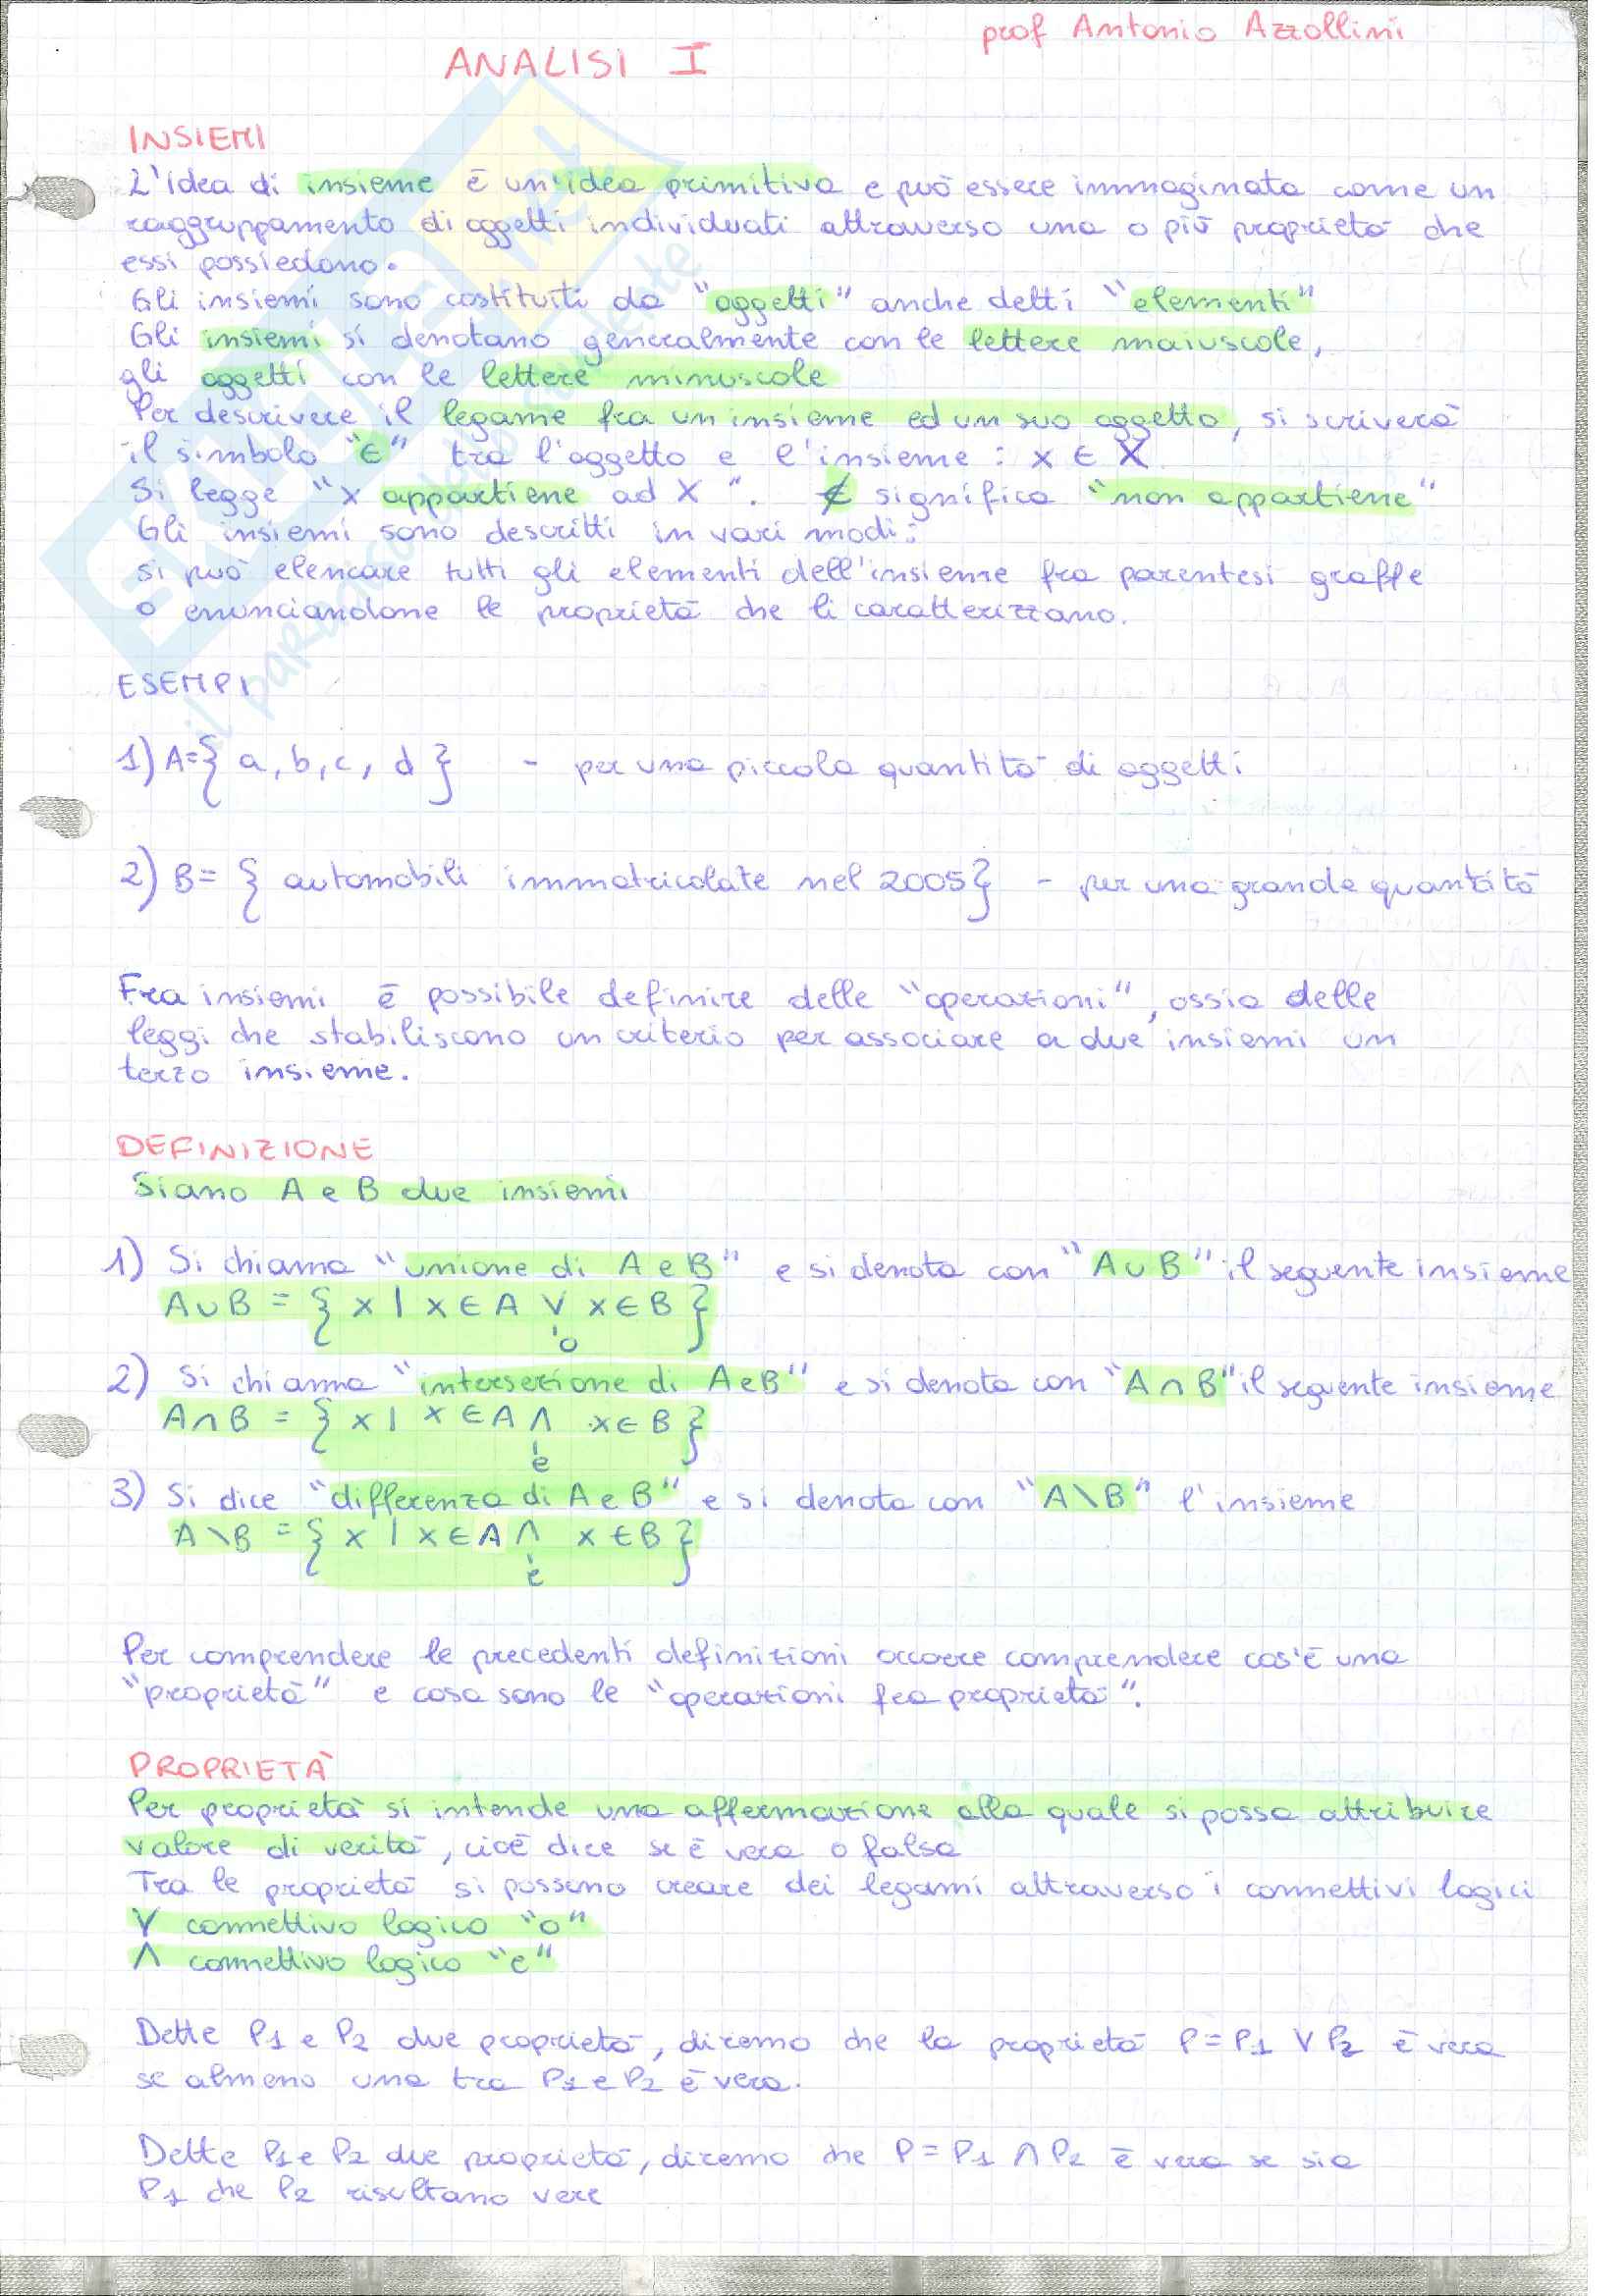 prof Antonio Azzollini
ANALISI I
INSIEMI
L'idea di insieme è un'idea primitiva e può essere immaginata come un
raggruppamento di oggetti individuati attraverso una o più proprietà che
essi possiedono.
Gli insiemi sono costituiti da "oggetti" anche detti "elementi"
Gli insiemi si denotano generalmente con le lettere maiuscole,
gli oggetti con le lettere minuscole
Per descrivere il legame fra un insieme ed un suo oggetto, si scriverà
il simbolo "∈" tra l'oggetto e l'insieme: x ∈ X
Si legge "x appartiene ad X". ∉ significa "non appartiene"
Gli insiemi sono descritti in vari modi:
si può elencare tutti gli elementi dell'insieme fra parentesi graffe
o enunciandone le proprietà che li caratterizzano.
ESEMPI
1) A={ a, b, c, d } - per una piccola quantità di oggetti
2) B= { automobili immatricolate nel 2005} - per una grande quantità
Fra insiemi è possibile definire delle "operazioni", ossia delle
leggi che stabiliscono un criterio per associare a due insiemi un
terzo insieme.
DEFINIZIONE
Siano A e B due insiemi
1) Si chiama "unione di A e B" e si denota con "A∪B" il seguente insieme
A∪B = { x | x ∈ A ∨ x ∈ B }
o
2) Si chiama "intersezione di A e B" e si denota con "A∩B" il seguente insieme
A∩B = { x | x ∈ A ∧ x ∈ B }
e
3) Si dice "differenza di A e B" e si denota con "A\B" l'insieme
A\B = { x | x ∈ A ∧ x ∈ B }
e
Per comprendere le precedenti definizioni occorre comprendere cos'è una
"proprietà" e cosa sono le "operazioni fra proprietà".
PROPRIETÀ
Per proprietà si intende una affermazione alla quale si possa attribuire
valore di verità, cioè dice se è vera o falsa
Tra le proprietà si possono creare dei legami attraverso i connettivi logici
∨ connettivo logico "o"
∧ connettivo logico "e"
Dette P1 e P2 due proprietà, diremo che la proprietà P = P1 ∨ P2 è vera
se almeno una tra P1 e P2 è vera.
Dette P1 e P2 due proprietà, diremo che P = P1 ∧ P2 è vera se sia
P1 che P2 risultano vere